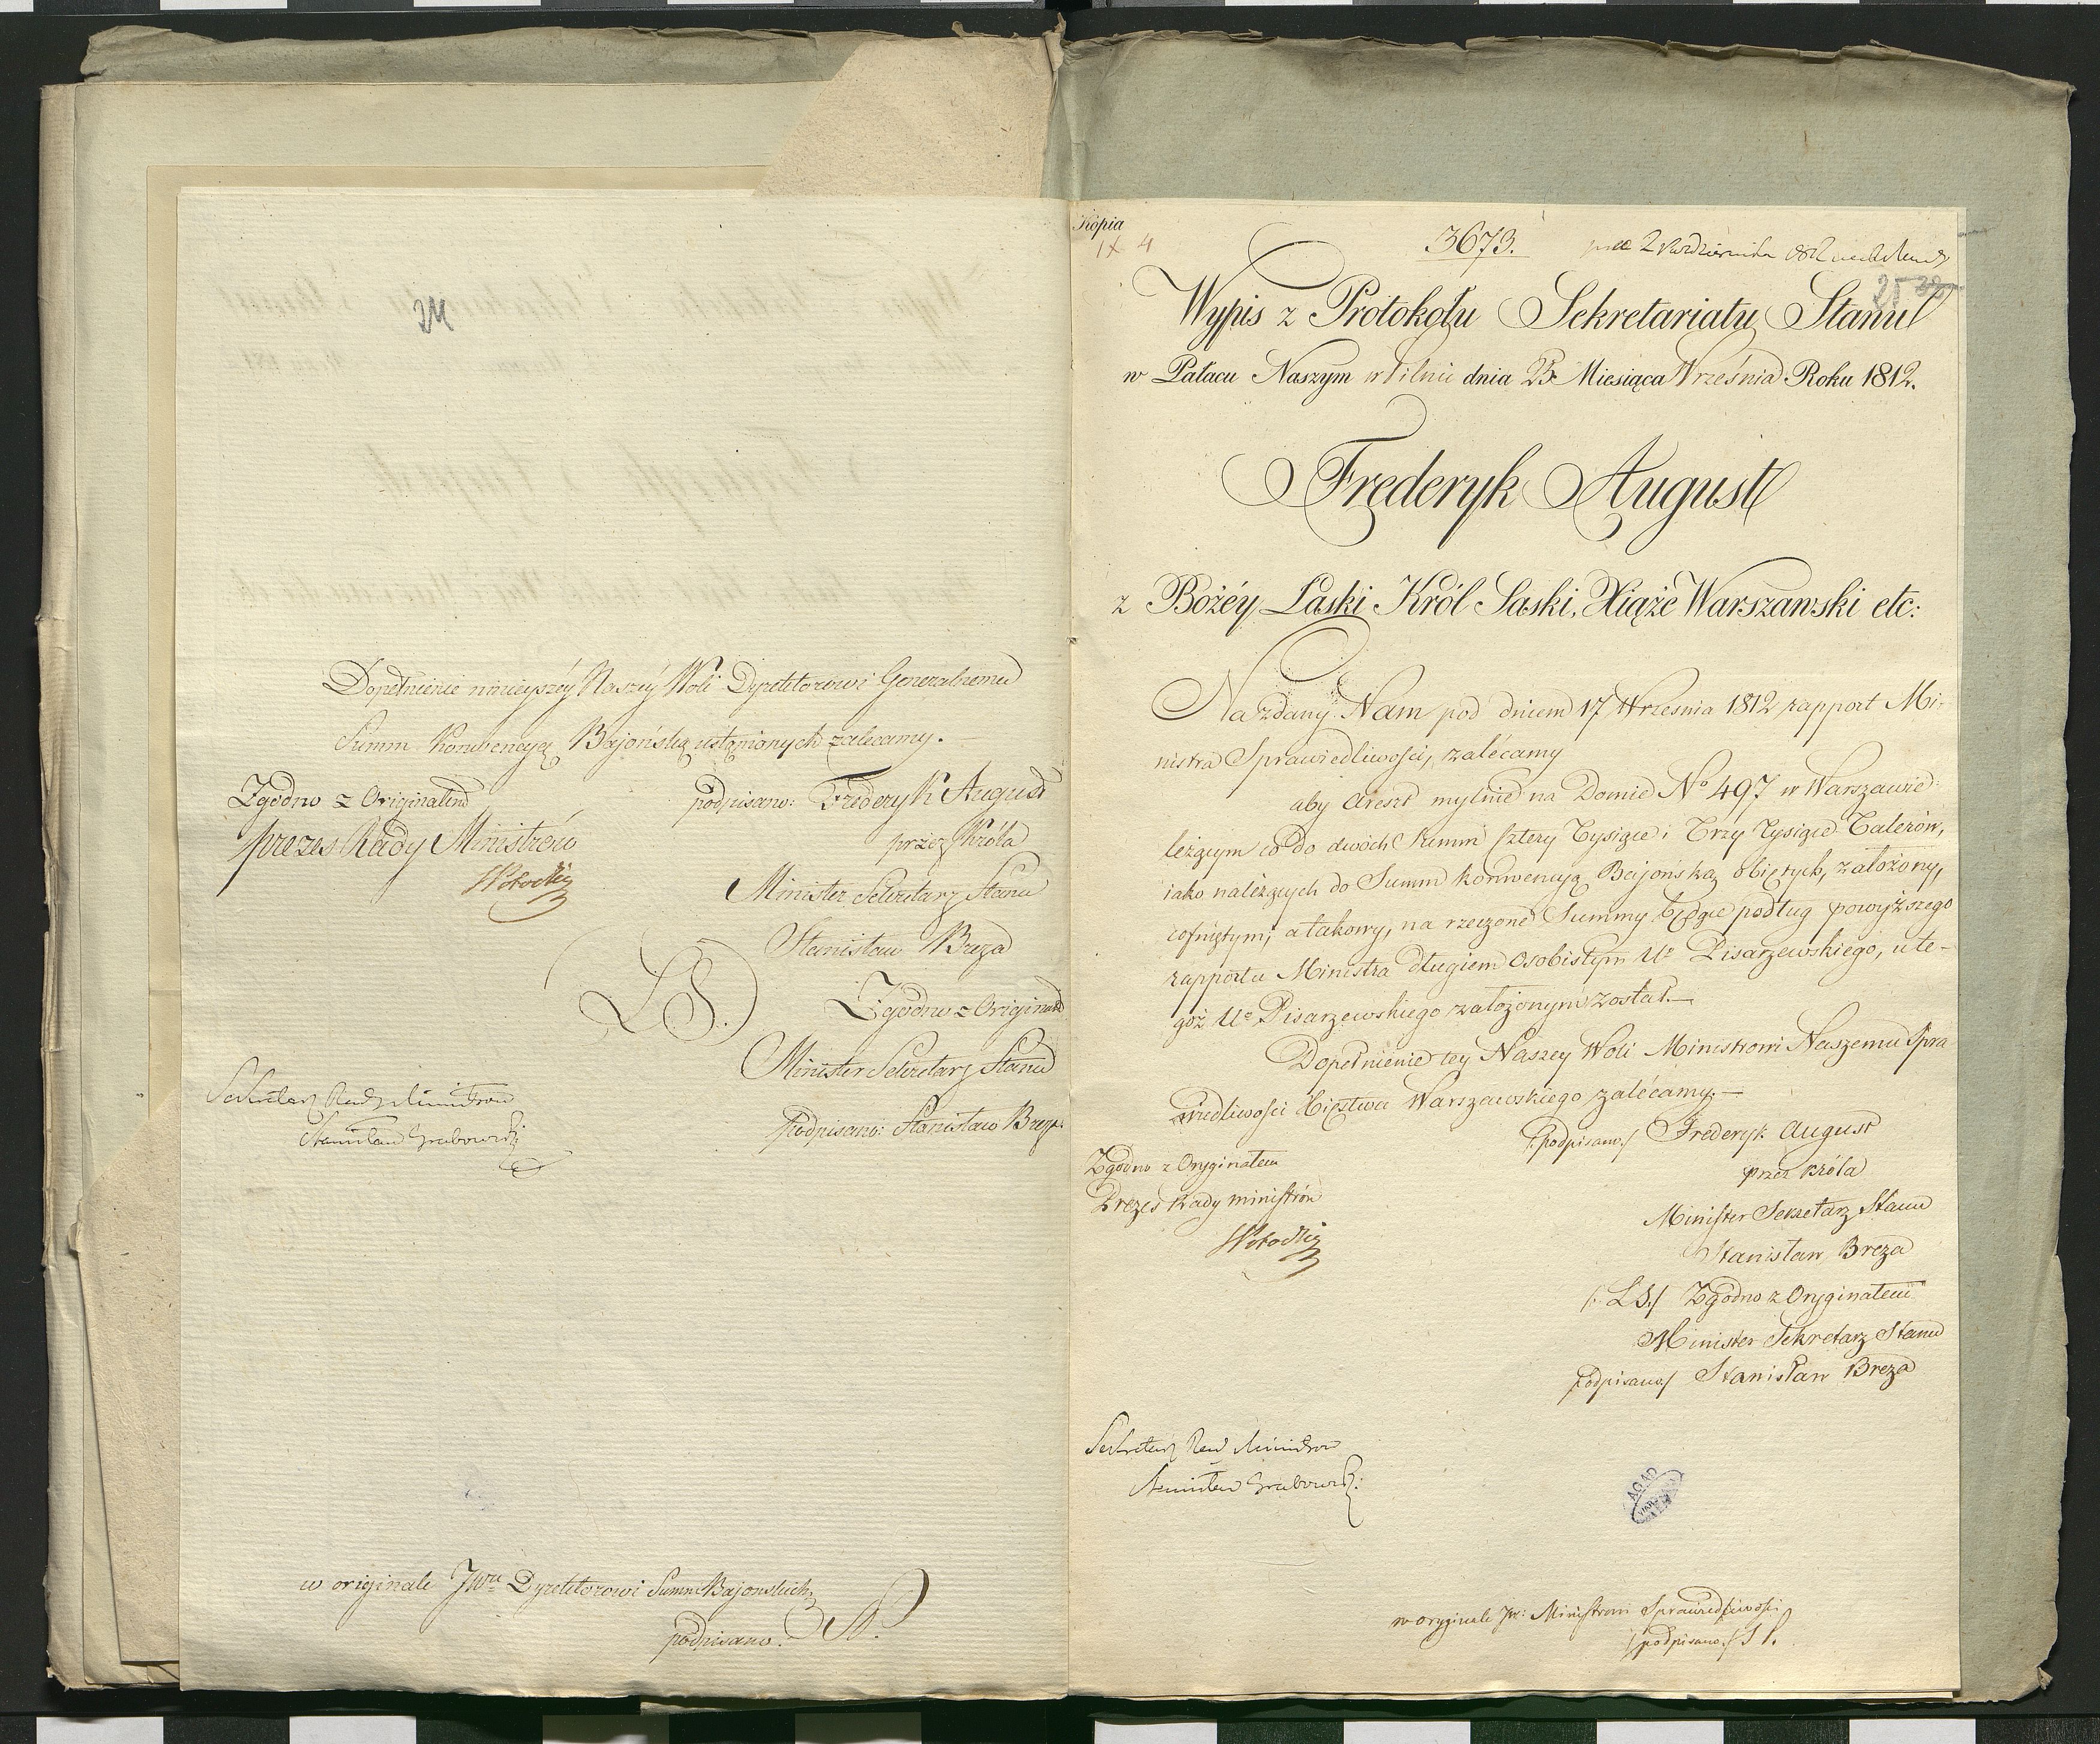 24
Dopełnienie ninieyszéy Naszéy Woli Dyrektorowi Generalnemu
Summ Konwencyą Bajońską ustąpionych zalecamy. —
Zgodno z Originałem
podpisano: Frederyk August
prezes Rady Ministrów
przez Króla
Minister Sekretarz Stanu
Stanisław Breza
LS.
Zgodno z Originałem
Minister Sekretarz Stanu
podpisano: Stanisław Breza
Sekretarz Rady Ministrow
Stanisław Grabowski
w originale JWu Dyrektorowi Summ Bajonskich
podpisano.
Kopia
IX 4
3673.
2 Października 1812
25
Wypis z Protokołu Sekretariatu Stanu
w Pałacu Naszym w Pilnic dnia 23 Miesiąca Września Roku 1812.
Frederyk August
z Bożéy Łaski Król Saski, Xiąże Warszawski etc:
Na zdany Nam pod dniem 17 Września 1812 rapport Mi-
nistra Sprawiedliwości, zalécamy
aby areszt mylnie na Domie No 497 w Warszawie
leżącym co do dwóch summ cztery Tysiące i Trzy Tysiące Talerów,
iako należących do Summ konwencyą Bajońską obiętych, założony,
cofniętym, a takowy, na rzeczone Summy będące podług powyższego
rapportu Ministra długiem osobistym Ue Pisarzewskiego, u te-
goż Ue Pisarzewskiego założonym został. —
Dopełnienie tey Naszey Woli Ministrowi Naszemu Spra
wiedliwości Xięstwa Warszawskiego zalécamy. —
/:podpisano:/ Frederyk August
Zgodno z Oryginałem
przez Króla
Prezes Rady ministrów
Minister Sekretarz Stanu
Stanisław Breza
/: LS./ Zgodno z Oryginałem
Minister Sekretarz Stanu
podpisano/ Stanisław Breza
Sekretarz Rad Ministrow
Stanisław Grabowski
AGAD
w oryginale JW: Ministrowi Sprawiedliwości
/podpisano:/ S P.